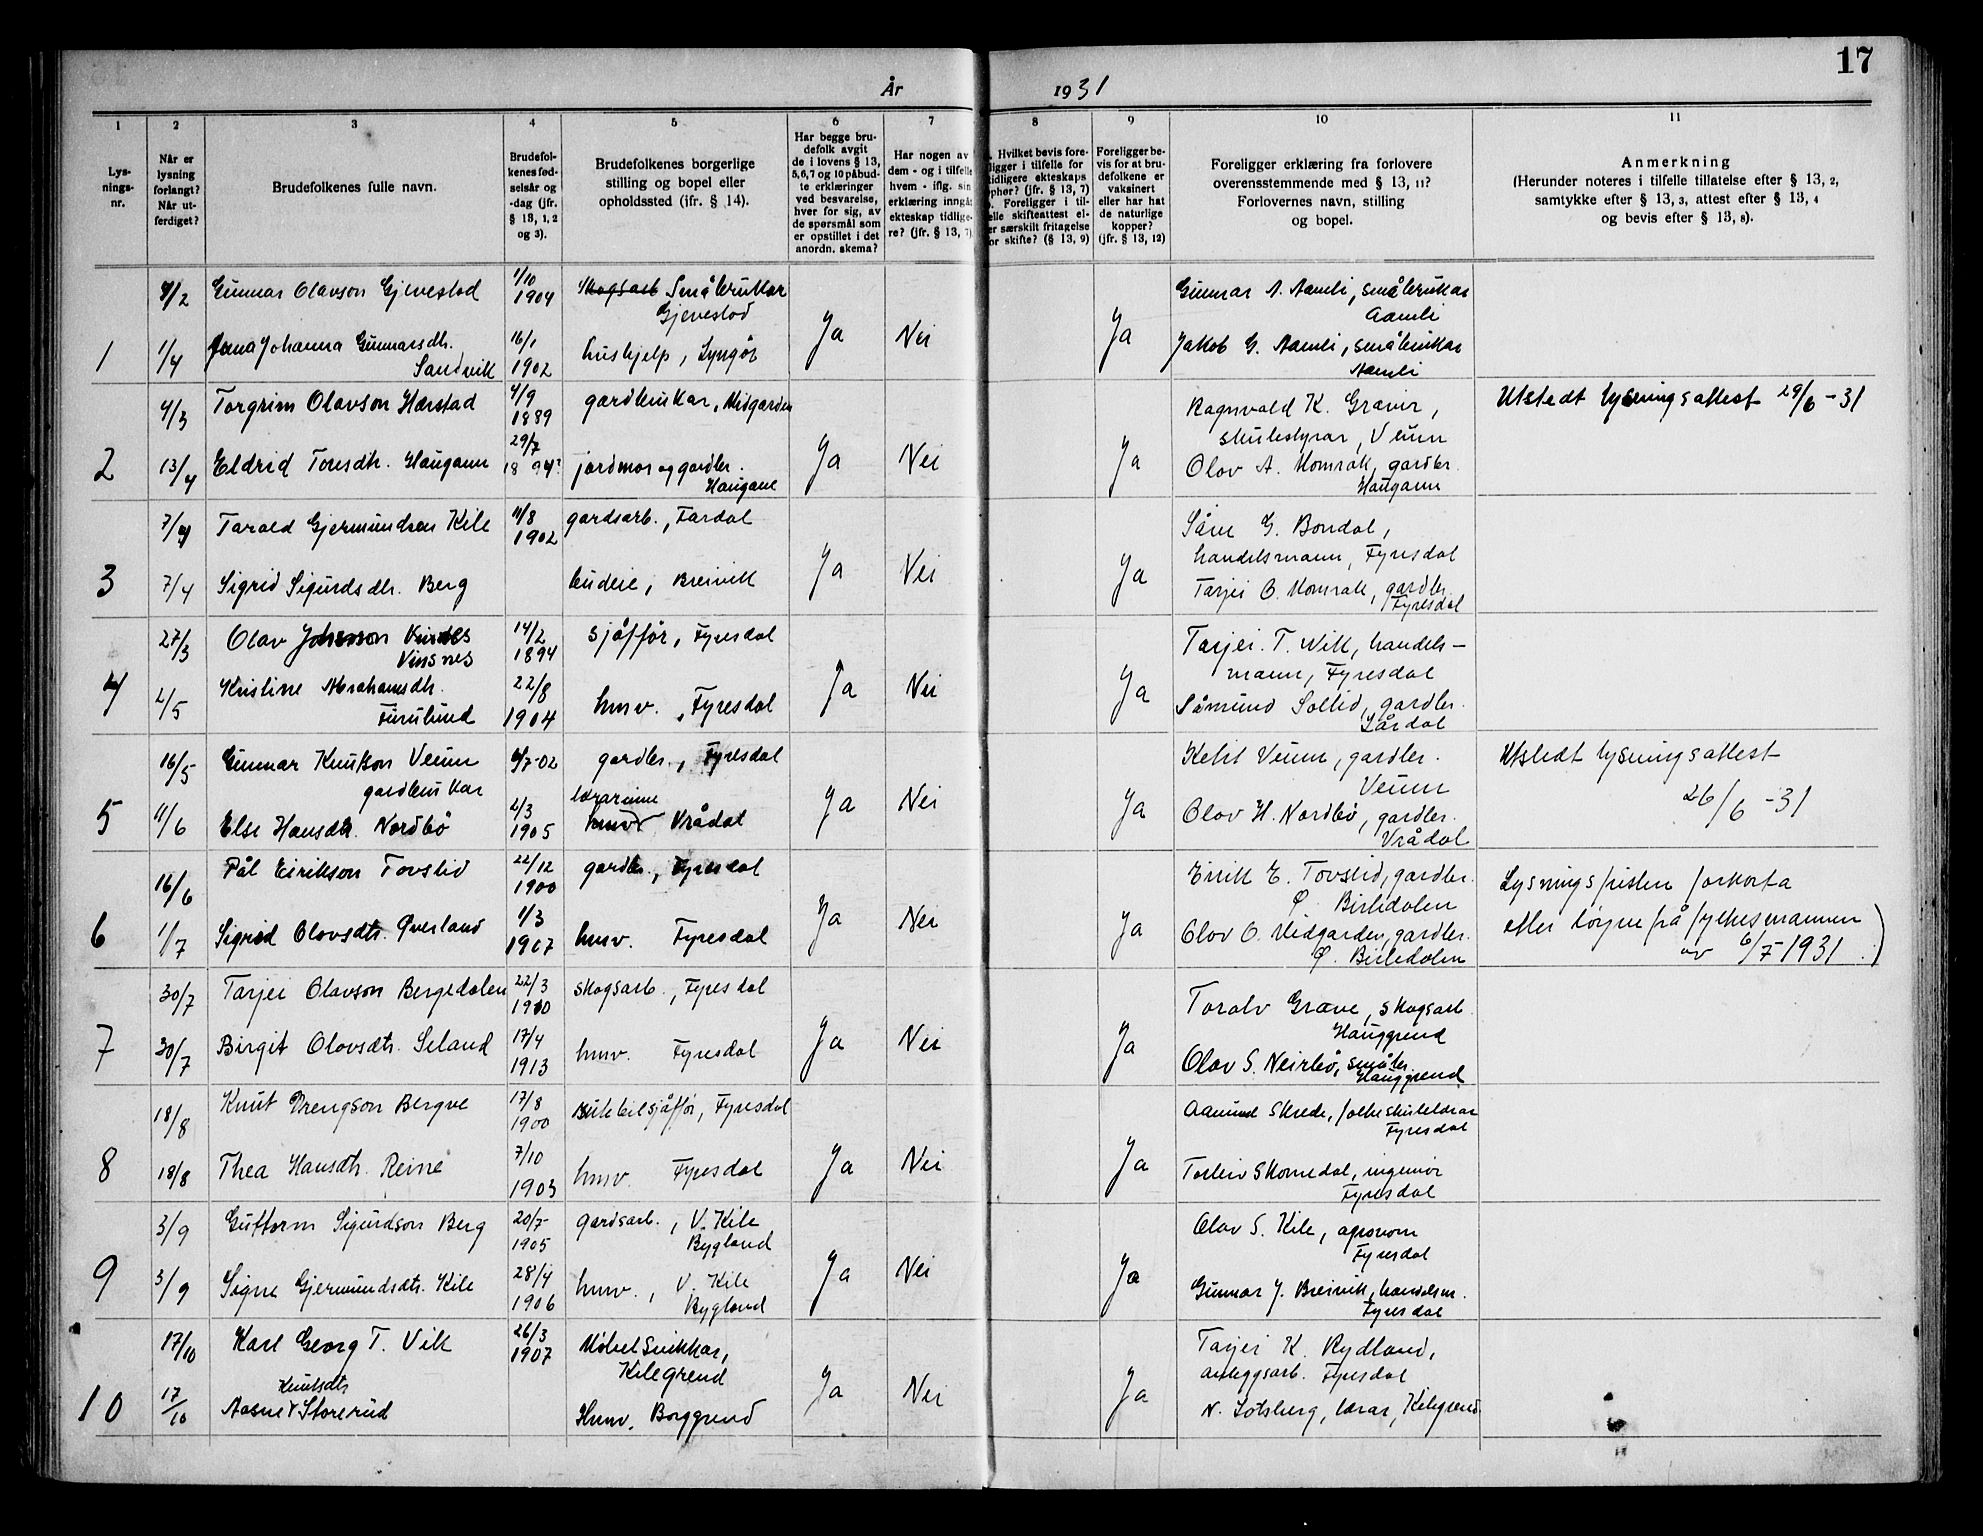 17
År 1931
1 2 3 4 5 6 7 8 9 10 11
Lys-
nings-
nr.
Når er
lysning
forlangt?
Når ut-
ferdiget?
Brudefolkenes fulle navn.
Brudefol-
kenes fød-
selsår og
-dag (jfr.
§ 13, 1, 2
og 3).
Brudefolkenes borgerlige
stilling og bopel eller
opholdssted (jfr. § 14).
Har begge bru-
defolk avgit
de i lovens § 13,
5,6,7 og 10 påbud-
te erklæringer
ved besvarelse,
hver for sig, av
de spørsmål som
er opstillet i det
anordn. skema?
Har nogen av
dem - og i tilfelle
hvem - iflg. sin
erklæring inngåt
ekteskap tidlige-
re? (jfr. § 13, 7)
Hvilket bevis fore-
ligger i tilfelle for
tidligere ekteskaps
ophør? (jfr. § 13, 7)
Foreligger i til-
elle skifteattest el-
er særskilt fritagelse
or skifte? (§ 13, 9)
Foreligger be-
vis for at bru-
defolkene er
vaksinert
eller har hat
de naturlige
kopper?
(jfr. § 13, 12)
Foreligger erklæring fra forlovere
overensstemmende med § 13, 11?
Forlovernes navn, stilling
og bopel.
Anmerkning
(Herunder noteres i tilfelle tillatelse efter § 13, 2,
samtykke efter § 13, 3, attest efter § 13, 4
og bevis efter § 13, 8).
Gunnar Olavson Gjevestad 1/10 1904 Skogsarb Småbrukar
Gjevestad
Gunnar A. Aamli, småbrukar
Aamli
1 1/4 Johanna Gunnarsdtr.
Sandvik 16/1 1902 hushjelp, Lyngør Ja Nei Ja
Jakob G. Aamli, småbrukar
Aamli
4/3 Torgrim Olavson Harstad 4/9 1889 gardbrukar, Midgarden
Ragnvald K. Gravir,
skulestyrar, Veum
Utstedt lysningsattest 29/6-31
2 13/4 Eldrid Toresdtr. Haugann 29/7 1894 jordmor og gardbr.
Haugane Ja Nei Ja
Olav A. Momrak, gardbr.
Haugann
7/4 Tarald Gjermundson Kile 11/8 1902 gardsarb., Fardal
G. Bondal,
handelsmann, Fyresdal
3 7/4 Sigrid Sigurdsdtr. Berg budeie, Breivik Ja Nei Ja
Tarjei O. Momrak, gardbr.
Fyresdal
27/3 Olav Johnsson
Vinsnes 14/2 1894 sjåffør, Fyresdal
Tarjei T. Vik, handels-
mann, Fyresdal
4 2/5 Kristine Abrahamsdtr.
Furulund 22/8 1904 hmv., Fyresdal Ja Nei Ja
Såmund Sollid, gardbr.
Lårdal
16/5 Gunnar Knutson Veum
gardbrukar 4/7-02 gardbr., Fyresdal
Ketil Veum, gardbr.
Veum
Utstedt lysningsattest
26/6-31
5 11/6 Else Hansdtr. Nordbø 2/3 1905 lærarinne
hmv Vrådal Ja Nei Ja
Olav H. Nordbø, gardbr.
Vrådal
16/6 Pål Eirikson Tovslid 22/12 1900 gardbr., Fyresdal
Eirik E. Tovslid, gardbr.
Ø. Birtedalen
Lysningsfristen forkorta
etter løyve frå fylkesmannen
av 6/7-1931
6 1/7 Sigrid Olavsdtr. Øverland 1/3 1907 hmv. Fyresdal Ja Nei Ja
Olav O. Midgarden, gardbr.
Ø. Birtedalen
30/7 Tarjei Olavson Bergedalen 22/3 1910 skogsarb., Fyresdal
Toralv Græve, skogsarb.
Hauggrend
7 30/7 Birgit Olavsdtr. Seland 17/4 1913 hmv. Fyresdal Ja Nei Ja
Olav S. Neirbø, småbr.
Hauggrend
18/8 Knut Drengson Bergve 17/8 1900 rutebilsjåffør, Fyresdal
Aamund Skrede, folkeskulelærar
Fyresdal
8 18/8 Thea Hansdtr. Reine 7/10 1903 hmv. Fyresdal Ja Nei Ja
Torleiv Skomedal, ingeniør
Fyresdal
3/9 Guttorm Sigurdson Berg 20/7-1905 gardsarb., V. Kile
Bygland
Olav S. Kile, agronom
Fyresdal
9 3/9 Signe Gjermundsdtr. Kile 28/4 1906 hmv., V. Kile
Bygland Ja Nei Ja
Gunnar J. Breivik, handelsm.
Fyresdal
17/10 Karl Georg T. Vik 26/3 1907 Møbelsnikkar,
Kilegrend
Tarjei K. Rydland,
anleggsarb. Fyresdal
Knutsdtr
10 17/10 Aasne Storerud Hmv. Borggrend Ja Nei Ja
N. Lotsberg, lærar, Kilegrend.